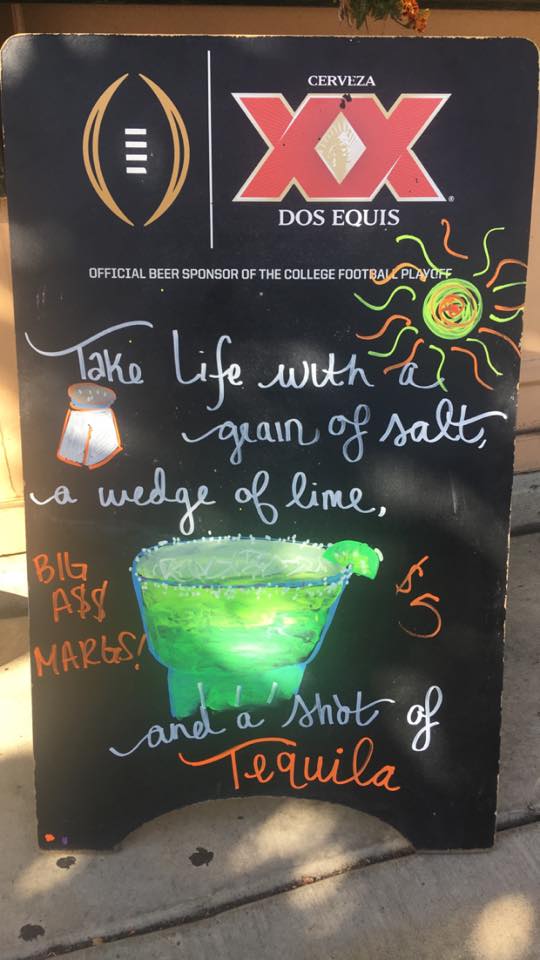 CERVEZA
XX
DOS EQUIS
OFFICIAL BEER SPONSOR OF THE COLLEGE FOOTBALL PLAYOFF
Take life with a
grain of salt,
a wedge of lime,
BIG
A$$
MARGS!
$5
and a shot of
Tequila